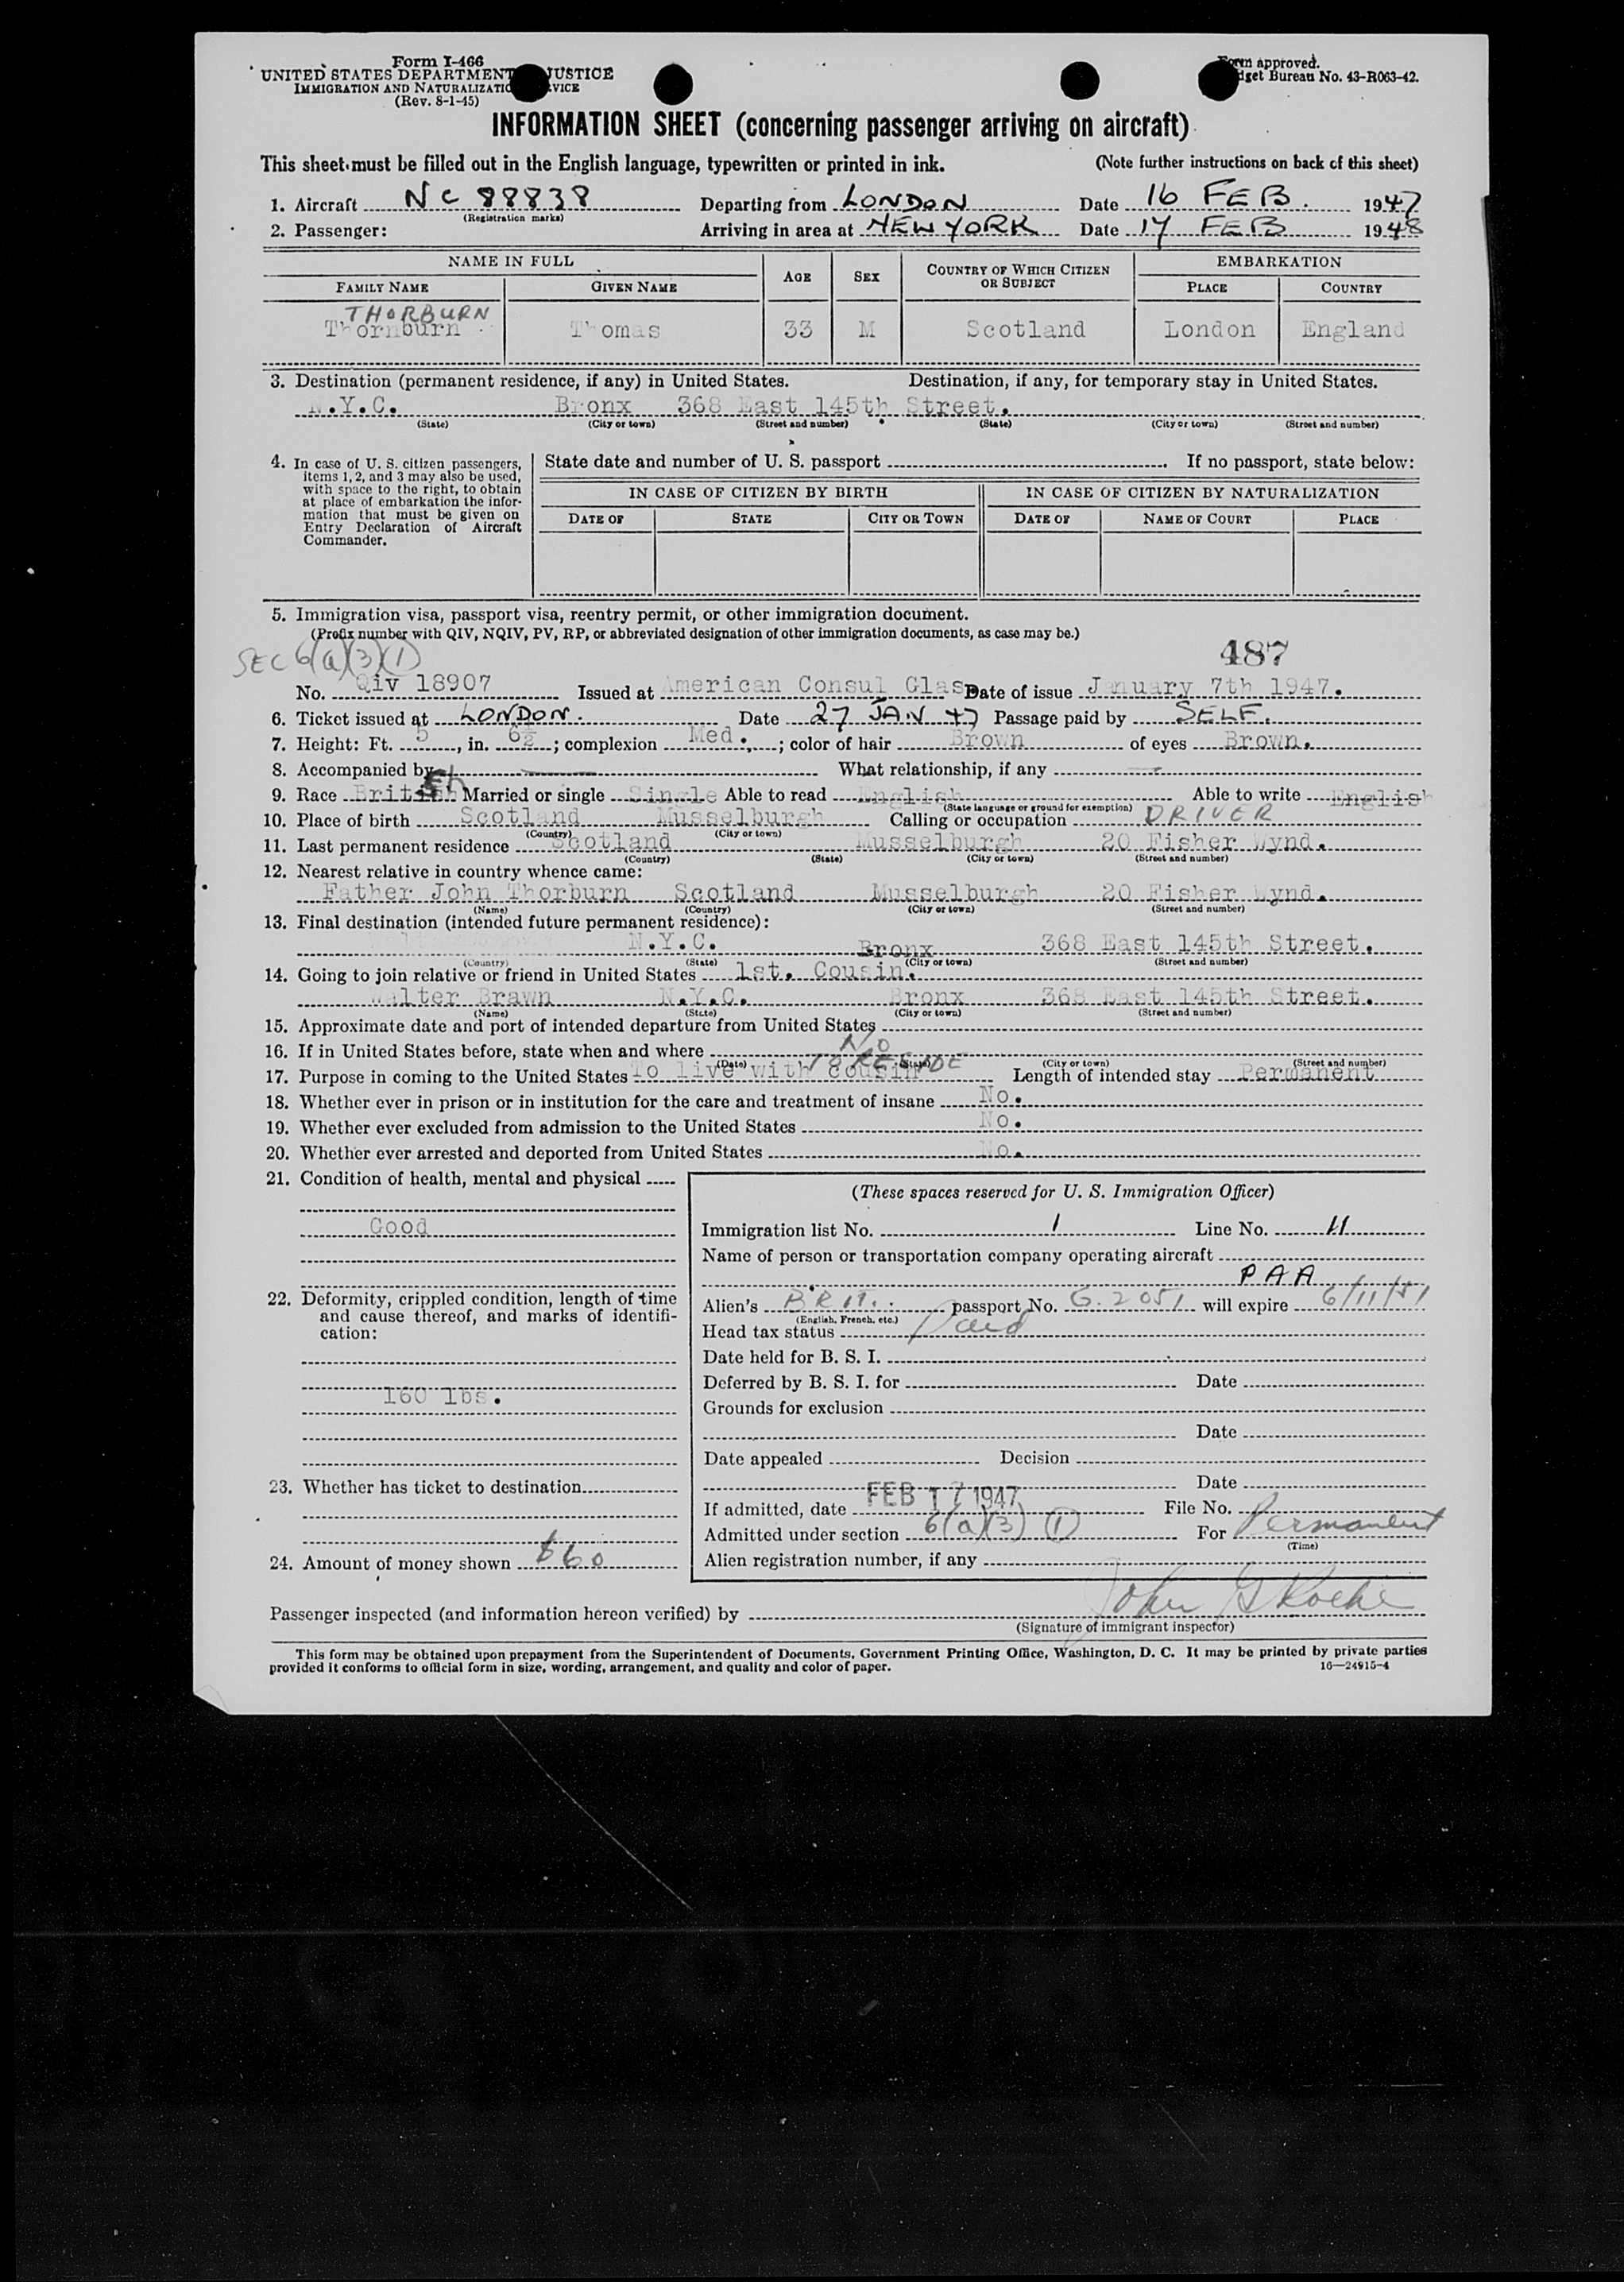 Form I-466
UNITED STATES DEPARTMENT JUSTICE
IMMIGRATION AND NATURALIZATIO VICE
(Rev. 8-1-45)
Form approved.
dget Bureau No. 43-R063-42.
INFORMATION SHEET (concerning passenger arriving on aircraft)
This sheet must be filled out in the English language, typewritten or printed in ink. (Note further instructions on back of this sheet)
1. Aircraft NC 88838 Departing from LONDON Date 16 FEB. 1947
(Registration marks)
2. Passenger: Arriving in area at NEW YORK Date 17 FEB 1948
NAME IN FULL AGE SEX COUNTRY OF WHICH CITIZEN OR SUBJECT EMBARKATION
FAMILY NAME GIVEN NAME PLACE COUNTRY
THORBURN
Thornburn Thomas 33 M Scotland London England
3. Destination (permanent residence, if any) in United States. Destination, if any, for temporary stay in United States.
N.Y.C. Bronx 368 East 145th Street.
(State) (City or town) (Street and number) (State) (City or town) (Street and number)
4. In case of U. S. citizen passengers, items 1, 2, and 3 may also be used, with space to the right, to obtain at place of embarkation the information that must be given on Entry Declaration of Aircraft Commander.
State date and number of U. S. passport If no passport, state below:
IN CASE OF CITIZEN BY BIRTH IN CASE OF CITIZEN BY NATURALIZATION
DATE OF STATE CITY OR TOWN DATE OF NAME OF COURT PLACE
5. Immigration visa, passport visa, reentry permit, or other immigration document.
(Prefix number with QIV, NQIV, PV, RP, or abbreviated designation of other immigration documents, as case may be.)
SEC 6(a)(3)(1) 487
No. Qiv 18907 Issued at American Consul Glas Date of issue January 7th 1947.
6. Ticket issued at LONDON. Date 27 JAN 47 Passage paid by SELF.
7. Height: Ft. 5, in. 6½; complexion Med.; color of hair Brown of eyes Brown.
8. Accompanied by What relationship, if any
9. Race British Married or single Single Able to read English Able to write English
(State language or ground for exemption)
10. Place of birth Scotland Musselburgh Calling or occupation DRIVER
(Country) (City or town)
11. Last permanent residence Scotland Musselburgh 20 Fisher Wynd.
(Country) (State) (City or town) (Street and number)
12. Nearest relative in country whence came:
Father John Thorburn Scotland Musselburgh 20 Fisher Wynd.
(Name) (Country) (City or town) (Street and number)
13. Final destination (intended future permanent residence):
N.Y.C. Bronx 368 East 145th Street.
(Country) (State) (City or town) (Street and number)
14. Going to join relative or friend in United States 1st. Cousin.
Walter Brawn N.Y.C. Bronx 368 East 145th Street.
(Name) (State) (City or town) (Street and number)
15. Approximate date and port of intended departure from United States
16. If in United States before, state when and where NO
(Date) (State) (City or town) (Street and number)
17. Purpose in coming to the United States To live with cousin TO RESIDE Length of intended stay Permanent
18. Whether ever in prison or in institution for the care and treatment of insane No.
19. Whether ever excluded from admission to the United States No.
20. Whether ever arrested and deported from United States No.
21. Condition of health, mental and physical
Good
22. Deformity, crippled condition, length of time and cause thereof, and marks of identification:
160 lbs.
23. Whether has ticket to destination
24. Amount of money shown $60
(These spaces reserved for U. S. Immigration Officer)
Immigration list No. 1 Line No. 11
Name of person or transportation company operating aircraft
PAA
Alien's BRIT. passport No. G. 2051 will expire 6/11/51
(English, French, etc.)
Head tax status Paid
Date held for B. S. I.
Deferred by B. S. I. for Date
Grounds for exclusion
Date
Date appealed Decision
Date
If admitted, date FEB 17 1947 File No.
Admitted under section 6(a)(3)(1) For Permanent
(Time)
Alien registration number, if any
Passenger inspected (and information hereon verified) by John G
(Signature of immigrant inspector)
This form may be obtained upon prepayment from the Superintendent of Documents, Government Printing Office, Washington, D. C. It may be printed by private parties
provided it conforms to official form in size, wording, arrangement, and quality and color of paper. 16—24915-4